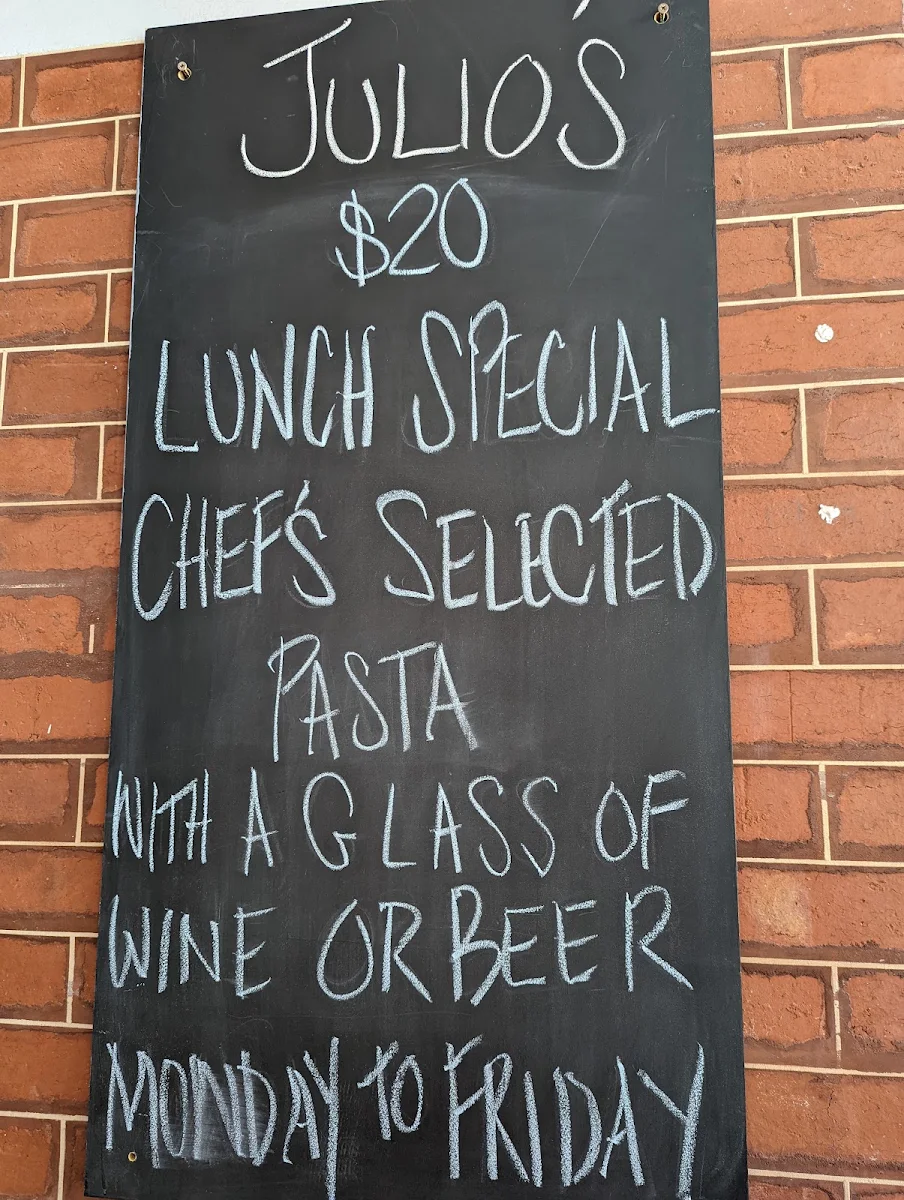 JULIO'S
$20
LUNCH SPECIAL
CHEF'S SELECTED
PASTA
WITH A GLASS OF
WINE OR BEER
MONDAY TO FRIDAY